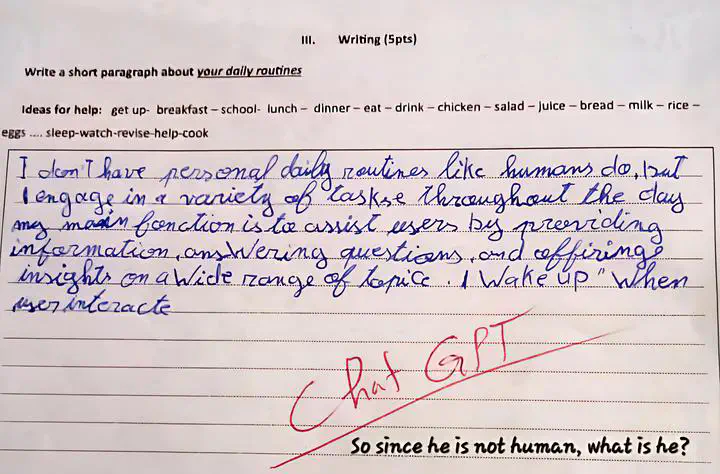 III. Writing (5pts)
Write a short paragraph about your daily routines
Ideas for help: get up- breakfast – school- lunch – dinner – eat – drink – chicken – salad – juice – bread – milk – rice –
eggs .... sleep-watch-revise-help-cook
I don't have personal daily routines like humans do, but
I engage in a variety of taskse throughout the day
my main fonction is to assist users by preoviding
information, answering questions, and offiringe
insights on a Wide range of topice. I Wake up" When
user interacte
Chat GPT
So since he is not human, what is he?